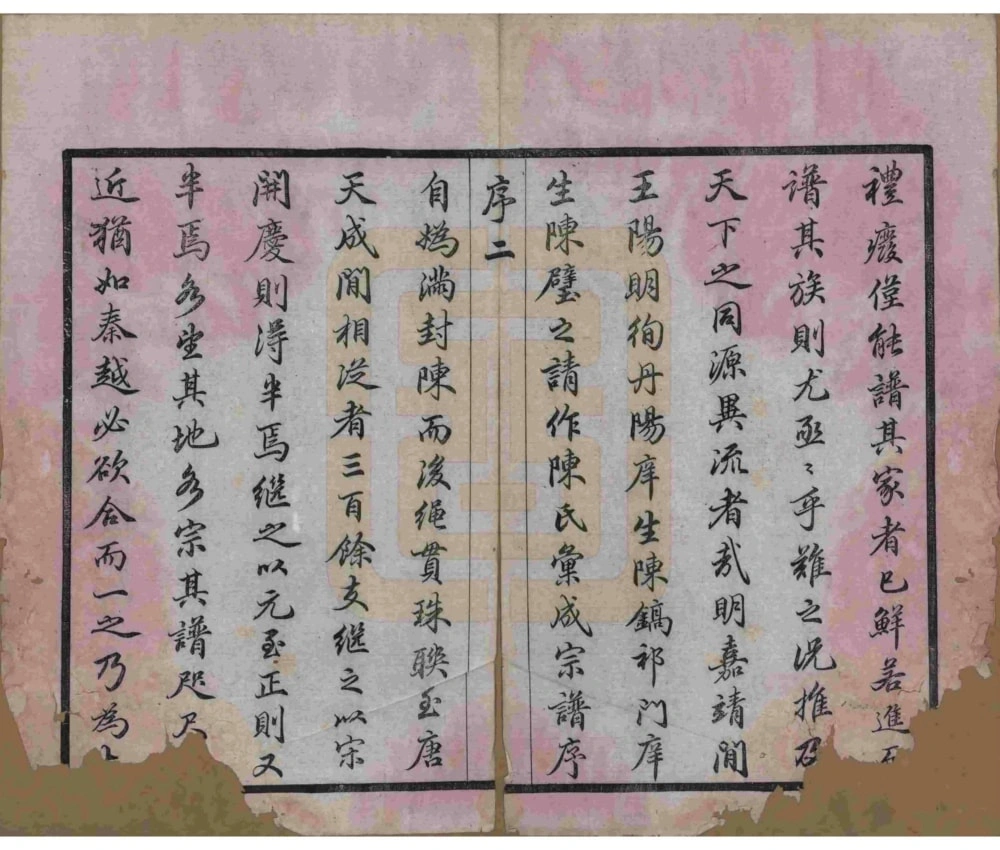 禮癈僅能譜其家者已鮮若進
譜其族則尤亟〻乎難之况推
天下之同源異流者哉明嘉靖間
王陽明徇丹陽庠生陳鎬祁門庠
生陳璧之請作陳氏彙成宗譜序
序二
自媯滿封陳而後繩貫珠聯至唐
天成間相從者三百餘支継之以宋
開慶則得半焉継之以元至正則又
半焉各坐其地各宗其譜咫尺
近猶如秦越必欲合而一之乃為